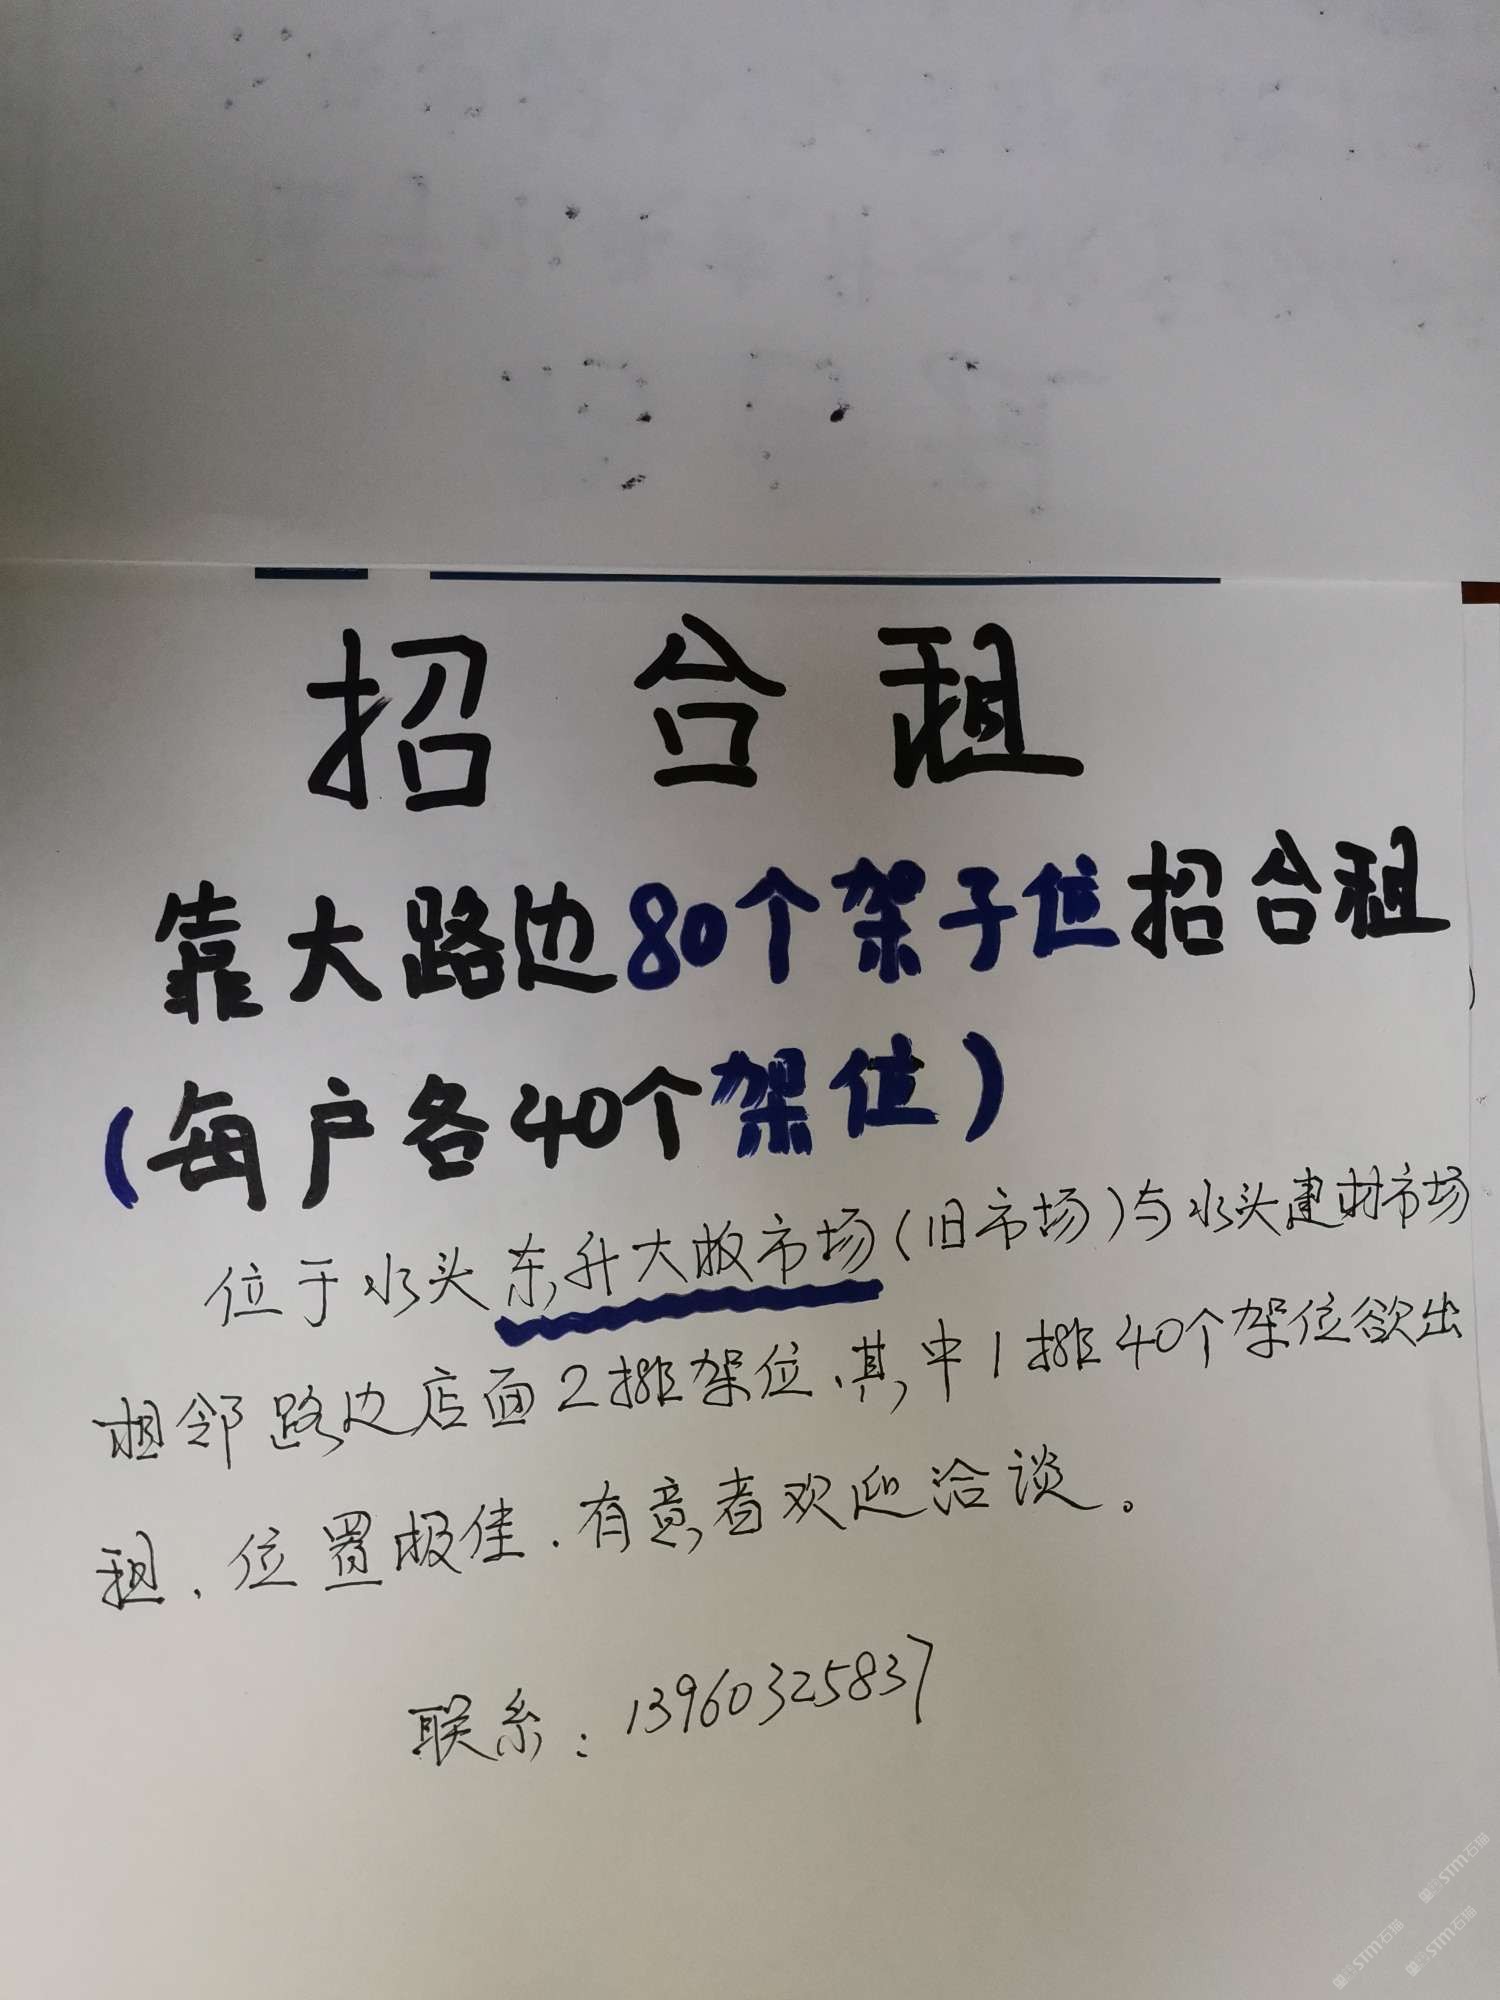 招合租
靠大路边80个架子位招合租
(每户各40个架位)
位于水头东升大板市场(旧市场)与水头建材市场
相邻路边店面2排架位、其中1排40个架位欲出
租、位置极佳.有意者欢迎洽谈。
联系:13960325837
STM石猫
STM石猫
STM石猫